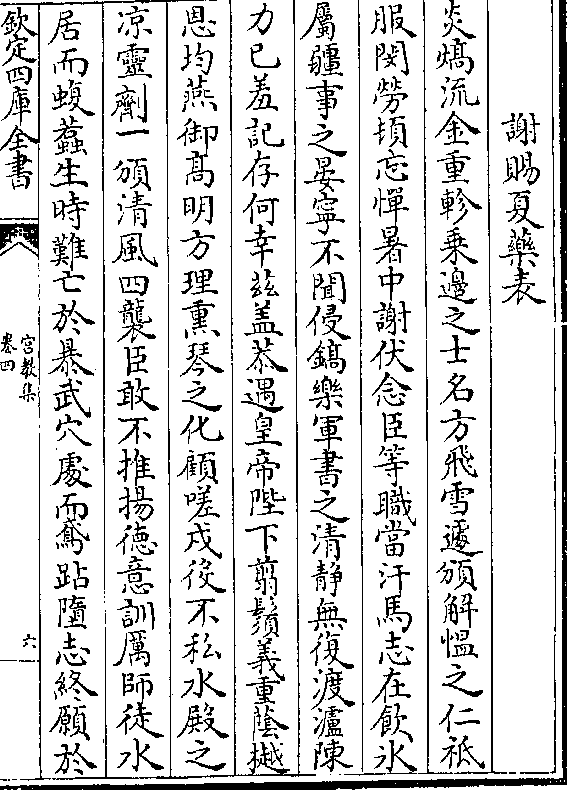 謝賜夏藥表
炎熇流金重軫乘邊之士名方飛雪遽頒解慍之仁祗
服閔勞頓忘憚暑中謝伏念臣等職當汗馬志在飲氷
屬疆事之晏寧不聞侵鎬樂軍書之清靜無復渡瀘陳
力已羞記存何幸兹盖恭遇皇帝陛下翦鬚義重蔭樾
恩均燕御高明方理熏琴之化顧嗟戍役不私水殿之
凉靈劑一頒清風四襲臣敢不推揚德意訓厲師徒水
居而蝮蠚生時難亡於暴武穴處而鳶跕墮志終願於
欽定四庫全書
宫教集
卷四
六